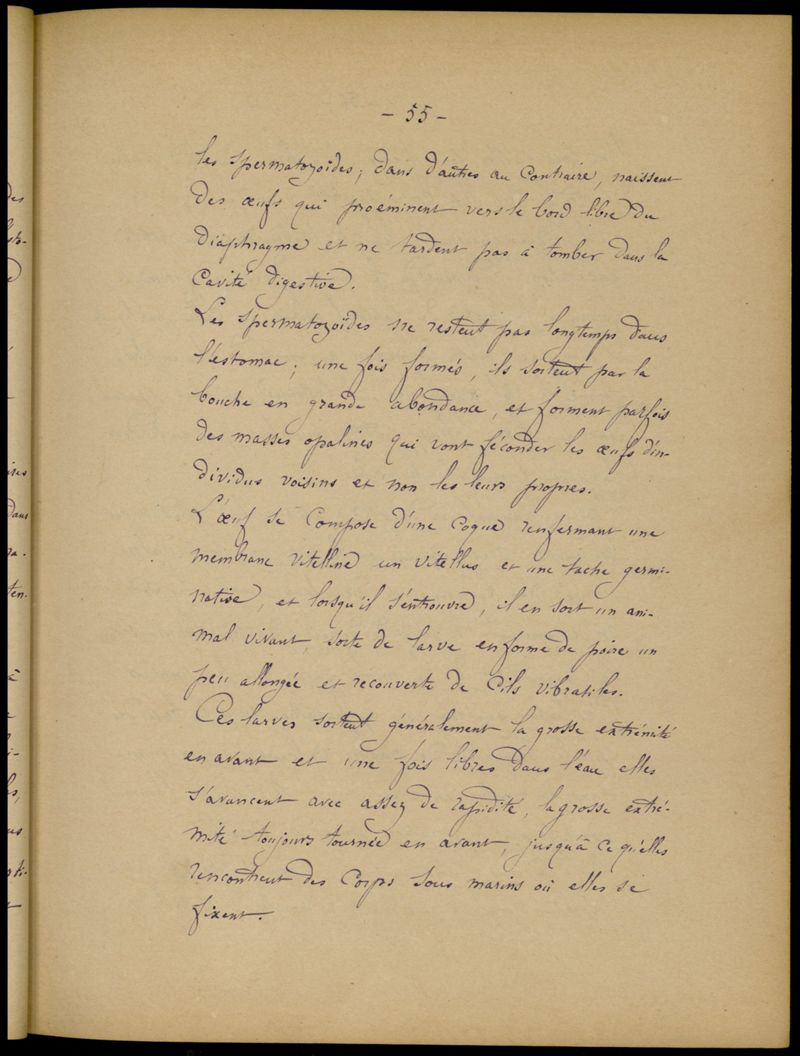 - 55 -
les spermatozoïdes; dans d'autres au contraire, naissent
des œufs qui proéminent vers le bord libre du
diaphragme et ne tardent pas à tomber dans la
cavité digestive.
Les spermatozoïdes ne restent pas longtemps dans
l'estomac; une fois formés, ils sortent par la
bouche en grande abondance, et forment parfois
des masses opalines qui vont féconder les œufs d'in-
dividus voisins et non les leurs propres.
L'œuf se compose d'une coque renfermant une
membrane vitelline un vitellus et une tache germi-
native, et lorsqu'il s'entrouvre, il en sort un ani-
mal vivant, sorte de larve en forme de poire un
peu allongée et recouverte de cils vibratiles.
Ces larves sortent généralement la grosse extrémité
en avant et une fois libres dans l'eau elles
s'avancent avec assez de rapidité, la grosse extré-
mité toujours tournée en avant, jusqu'à ce qu'elles
rencontrent des corps sous marins où elles se
fixent.